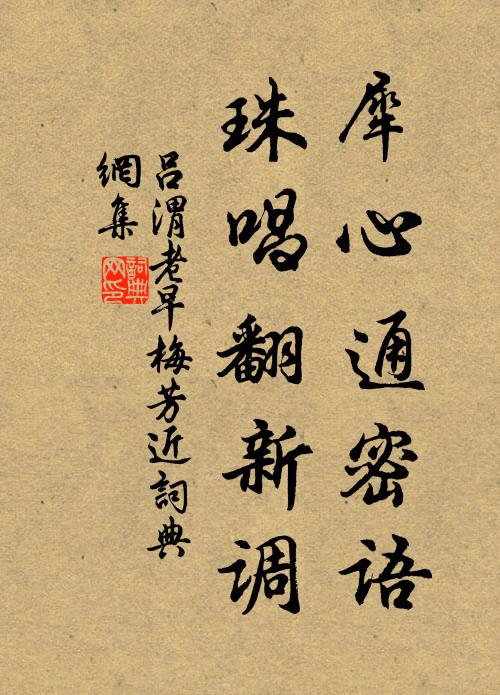 犀心通密语
珠唱翻新调
吕渭老早梅芳近詞典
網集
詞典
网印